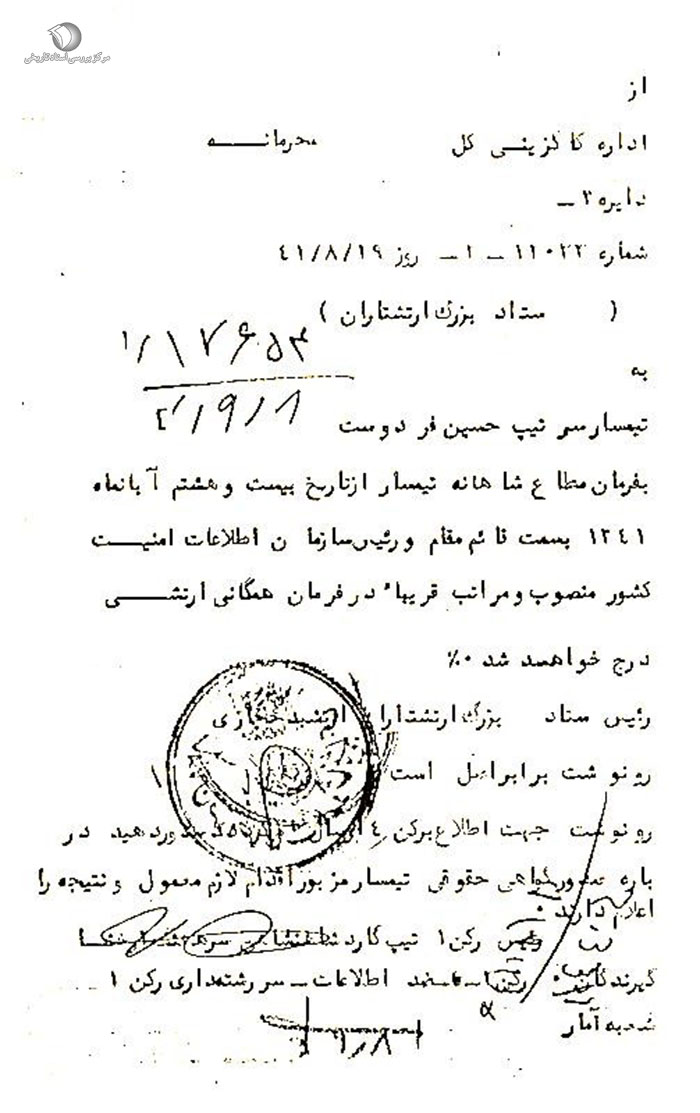 مرکز بررسی اسناد تاریخی
از
اداره کارگزینی کل محرمانه
دایره ۲ -
شماره ۱۱۰۲۲ - ۱ - روز ۴۱/۸/۱۹
( ستاد بزرگ ارتشتاران )
۱/۱۷۶۵۳
به
۴۱/۹/۱
تیمسار سرتیپ حسین فردوست
بفرمان مطاع شاهانه تیمسار از تاریخ بیست و هشتم آبانماه
۱۳۴۱ بسمت قائم مقام و رئیس سازمان اطلاعات امنیت
کشور منصوب و مراتب قریباً در فرمان همگانی ارتشی
درج خواهد شد ۰٪
رئیس ستاد بزرگ ارتشتاران ارتشبد حجازی
رونوشت برابر اصل است
رونوشت جهت اطلاع برکن ۴ دستور دهید در
باره صدور گواهی حقوقی تیمسار مزبور اقدام لازم معمول و نتیجه را
اعلام دارند ۰
رئیس رکن ۱ تیپ گارد
گیرندگان اطلاعات - سررشته‌داری رکن ۱
شعبه آمار